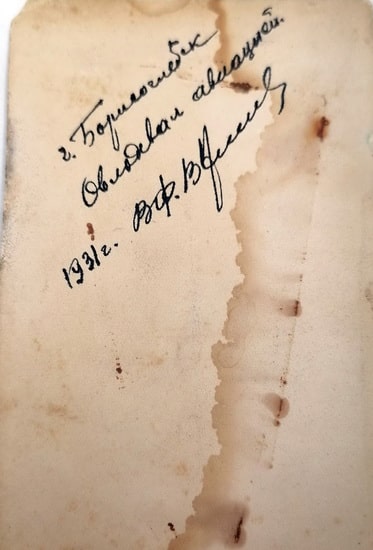 г. Борисоглебск
Овладевал авиацией.
1931г. В.Ф.